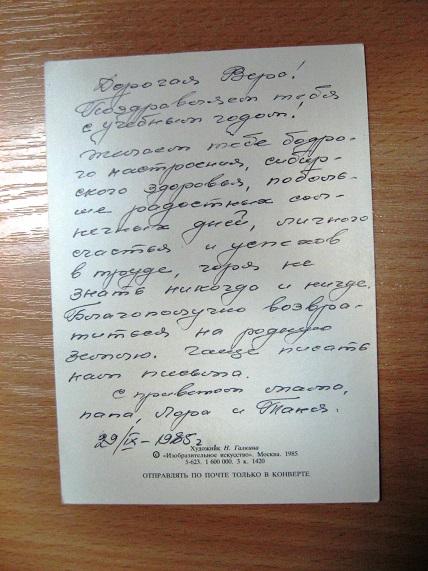 Дорогая Вера!
Поздравляем тебя
с учебным годом!
Желаем тебе бодро-
го настроения, сибир-
ского здоровья, поболь-
ше радостных сол-
нечных дней, личного
счастья и успехов
в труде, горя не
знать никогда и нигде.
Благополучно возвра-
титься на родную
землю. Чаще писать
нам письма.
С приветом мама,
папа, Лора и Таня.
29/IX-1985г
Художник Н. Галкина
© «Изобразительное искусство». Москва. 1985
5-623. 1 600 000. 3 к. 1420
ОТПРАВЛЯТЬ ПО ПОЧТЕ ТОЛЬКО В КОНВЕРТЕ